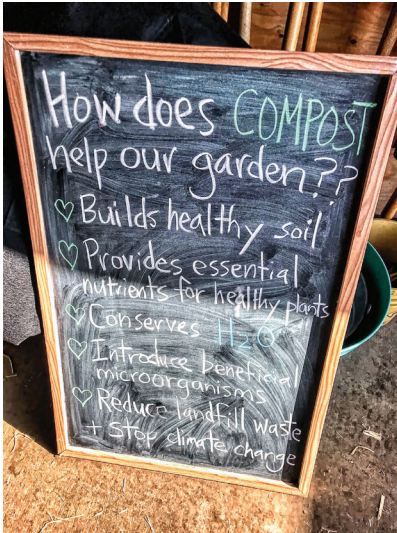 How does COMPOST
help our garden??
Builds healthy soil
Provides essential
nutrients for healthy plants
Conserves H2O
Introduce beneficial
microorganisms
Reduce landfill waste
+ Stop climate change